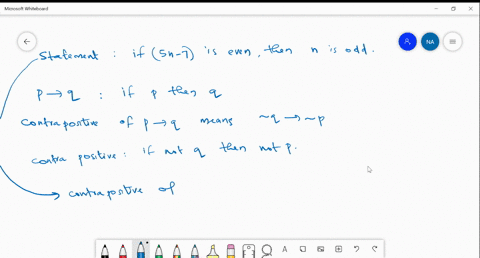 Microsoft Whiteboard
NA
Statement : if (5n-7) is even, then n is odd.
p → q : if p then q
Contrapositive of p → q means ~q → ~p
Contra positive : if not q then not p.
→ contrapositive of